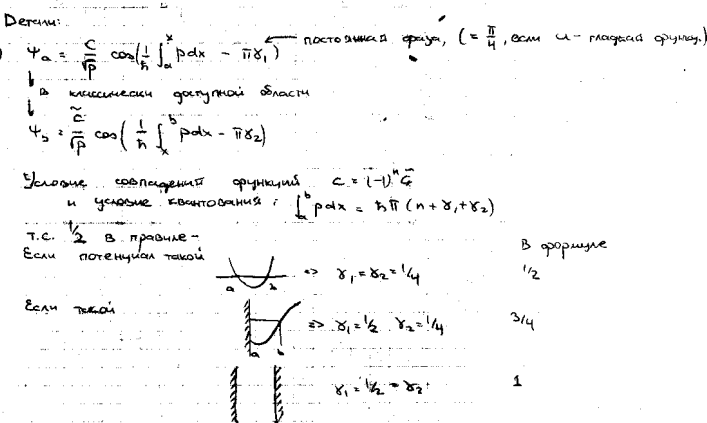 Детали:
ψₐ = C/√p cos(1/ħ ∫ₐˣ pdx − πγ₁) ← постоянная фаза, (= π/4, если u - гладкая функц.)
в классически доступной области
ψ_b = C̃/√p cos(1/ħ ∫ₓᵇ pdx − πγ₂)
Условие совпадений функций C = (-1)ⁿ C̃
и условие квантования: ∫ₐᵇ pdx = ħπ (n + γ₁ + γ₂)
т.е. 1/2 в правиле -
В формуле
Если потенциал такой
a b
=> γ₁ = γ₂ = 1/4
1/2
Если такой
a b
=> γ₁ = 1/2 γ₂ = 1/4
3/4
γ₁ = 1/2 = γ₂
1